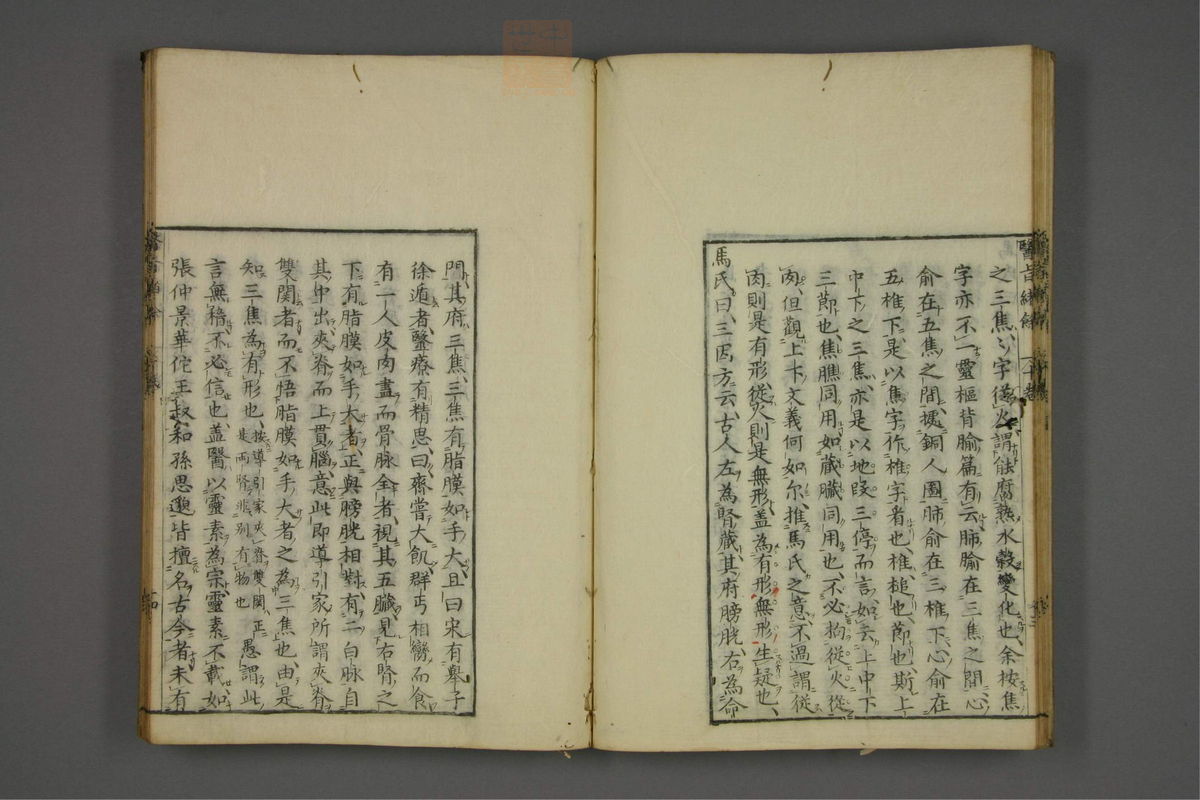 之三焦ノ字從火謂能腐熟水穀變化也余按焦
字亦不一靈樞背腧篇有云肺腧在三焦之間心
俞在五焦之間據銅人圖肺俞在三椎下心俞在
五椎下是以焦字作椎字者也椎槌也節也斯上
中下之三焦亦是以地段三停而言如云上中下
三節也焦膲同用如藏臟同用也不必拘從火從
肉但觀上下文義何如尔推馬氏之意不過謂從
肉則是有形從火則是無形盖為有形無形生疑也
馬氏曰三因方云古人左為腎藏其府膀胱右為命
門其府三焦三焦有脂膜如手大且曰宋有舉子
徐遁者醫療有精思曰齊嘗大飢群丐相臠而食
有一人皮肉盡而骨脉全者視其五臟見右腎之
下有脂膜如手大者正與膀胱相對有二白脉自
其中出夾脊而上貫腦意此即導引家所謂夾脊
雙関者而不悟脂膜如手大者之為三焦也由是
知三焦為有形也按導引家夾脊雙関正是両腎非別有物也愚謂此
言無稽不必信也盖醫以靈素為宗靈素不載如
張仲景華佗王叔和孫思邈皆擅名古今者未有